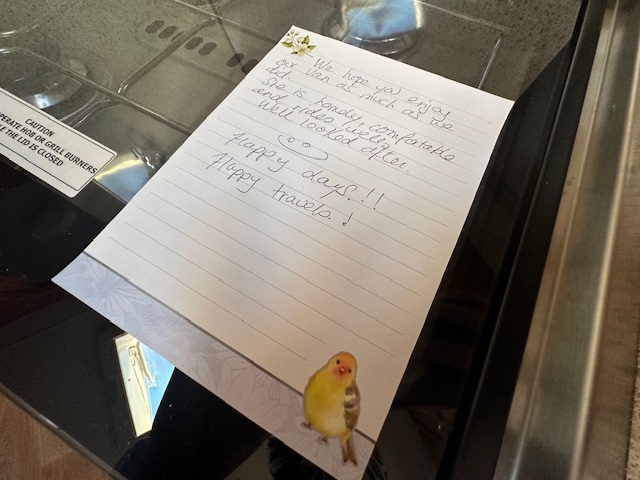 We hope you enjoy
our van as much as we
did.
She is homely, comfortable
and rides well.
Well looked after.
Happy days!!!
Happy travels!
CAUTION
OPERATE HOB OR GRILL BURNERS
THE LID IS CLOSED